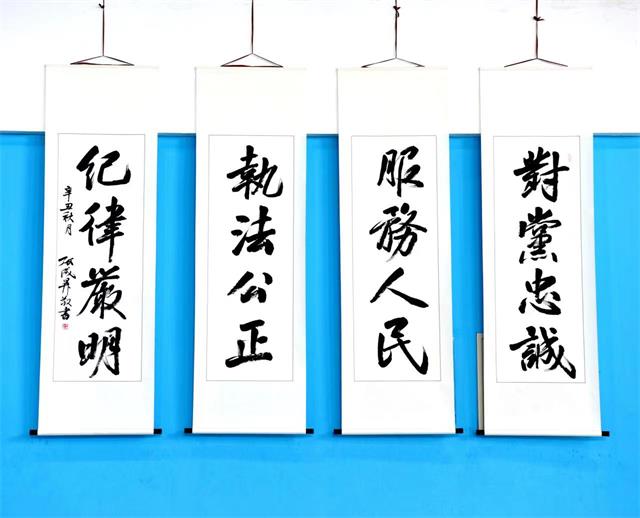 對黨忠誠
服務人民
執法公正
紀律嚴明
辛丑秋月